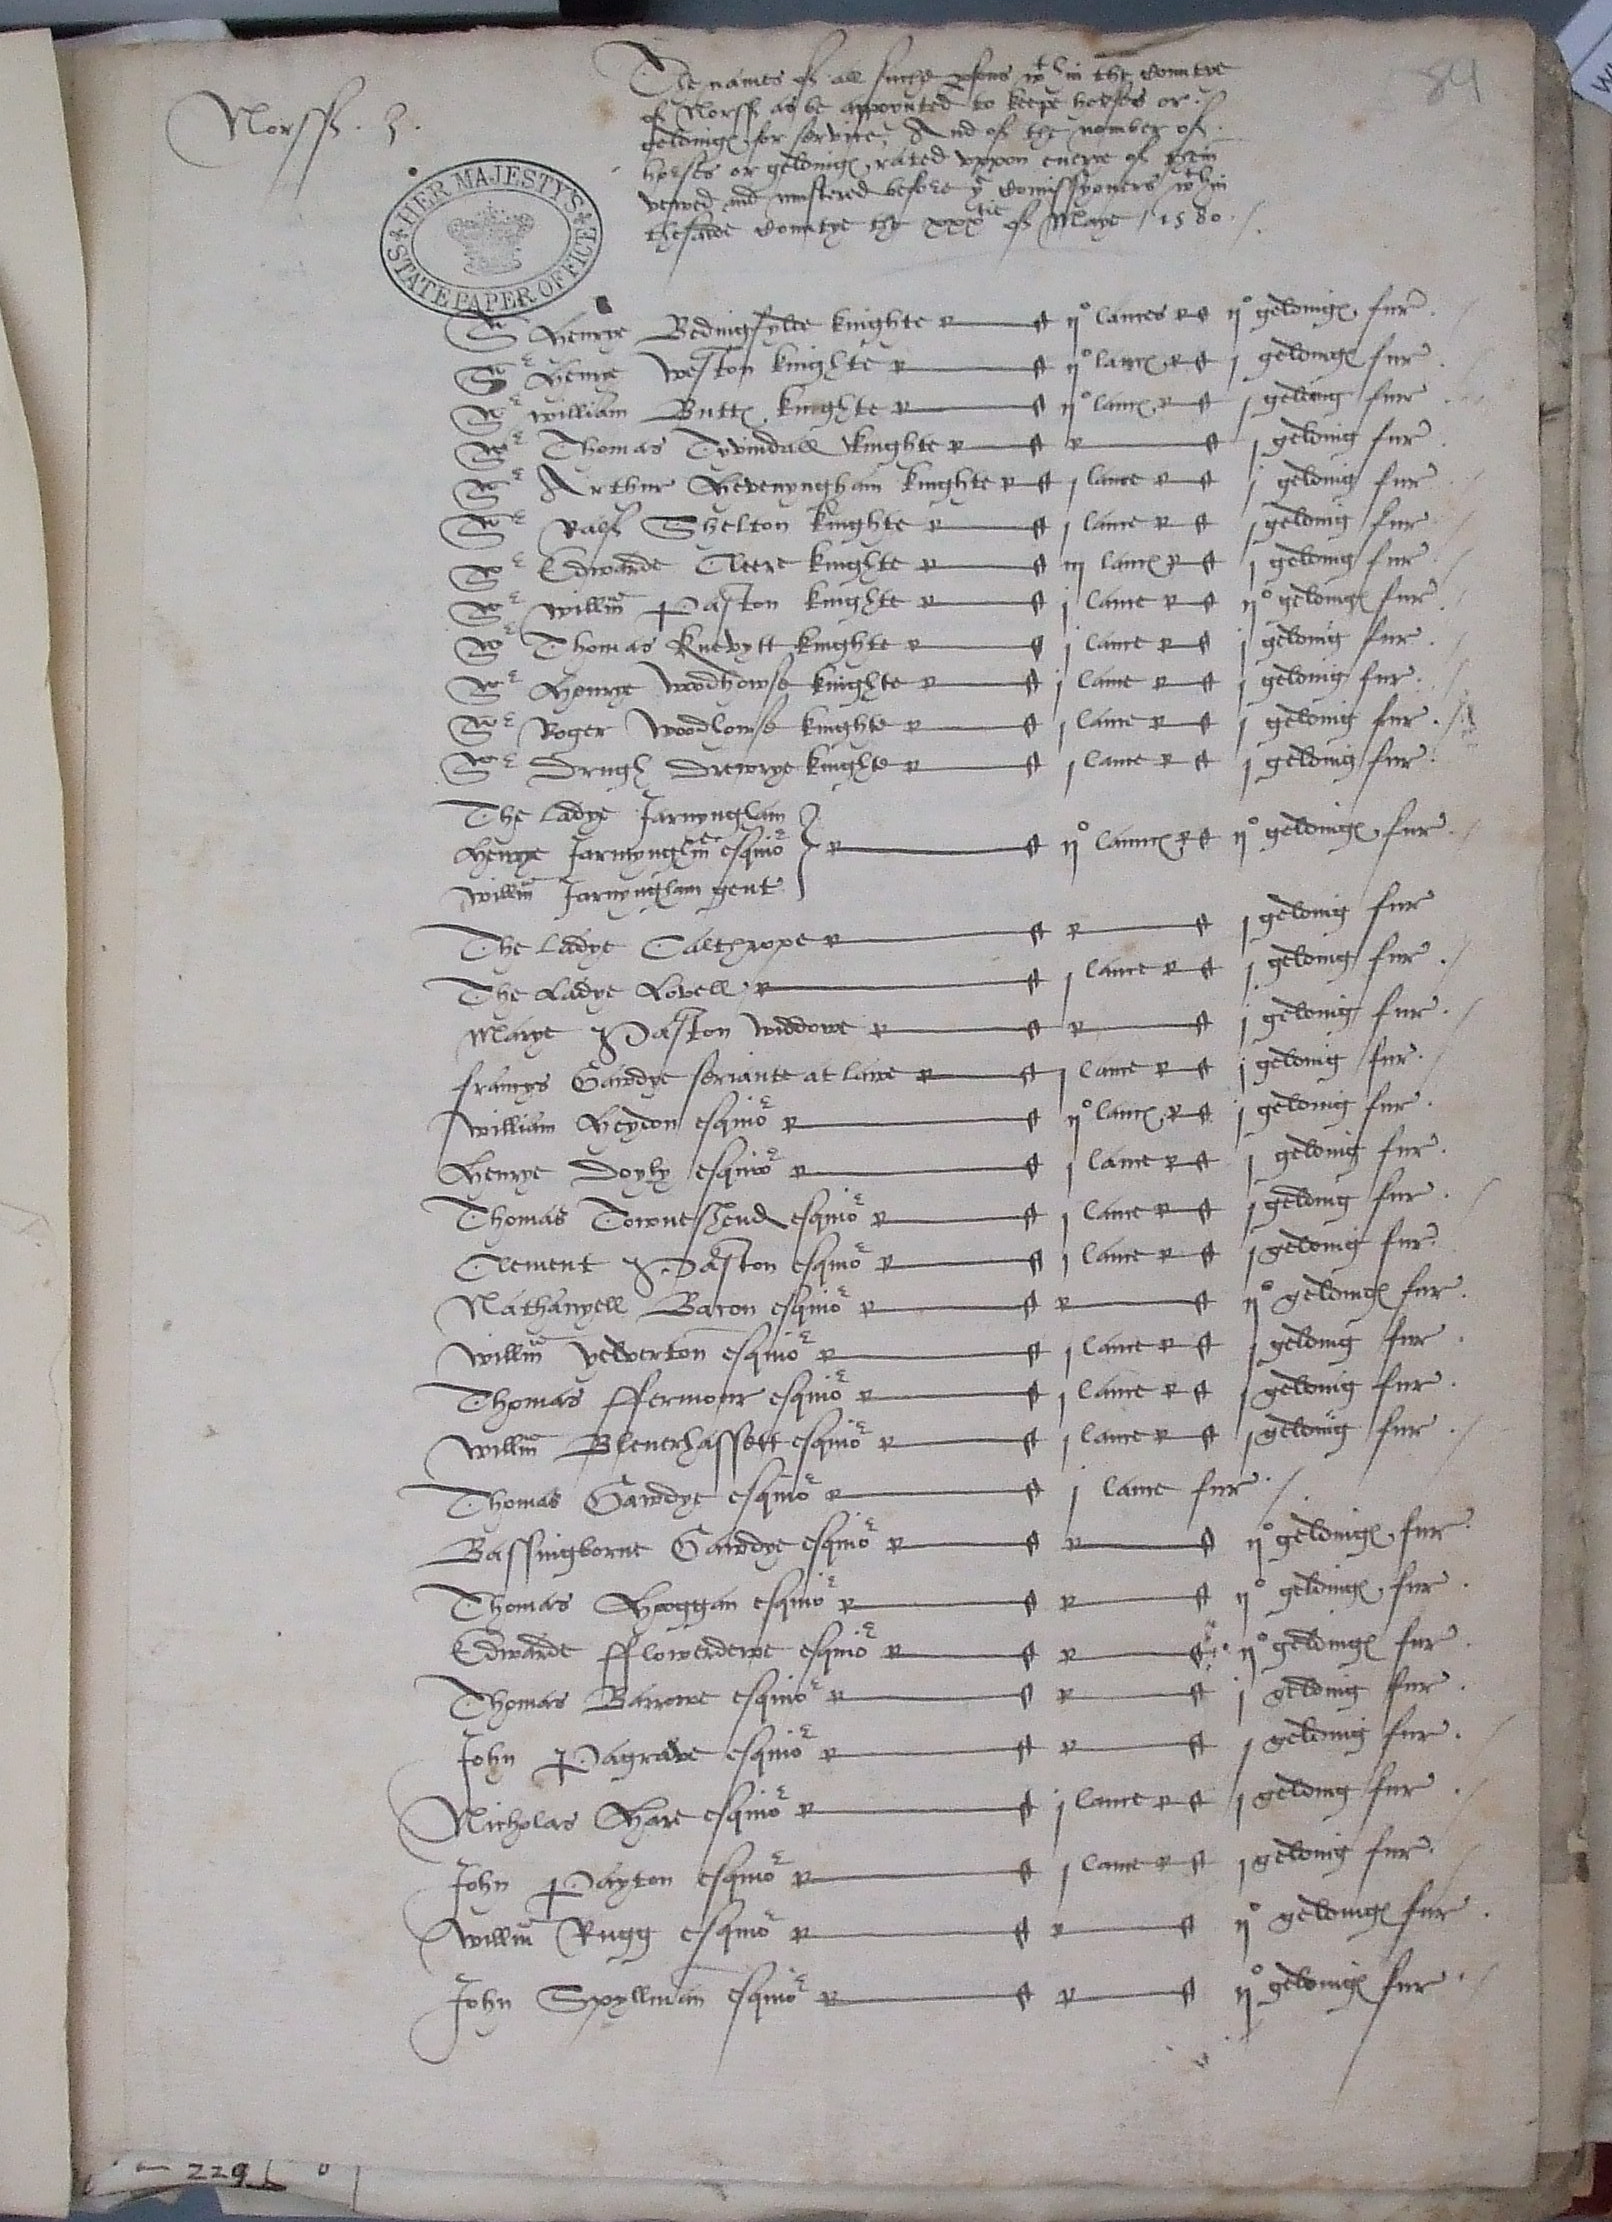 84
Norff. 3.
The names of all suche psons wth in the Countye
of Norff as be appoynted to kepe horses or
geldings for service, And of the nomber of
horses or geldings rated uppon everye of them
vewed and mustered before ye Comissyoners wthin
thesaide Countye the xxxtie of Maye 1580.
HER MAJESTY'S STATE PAPER OFFICE
Sr Henrye Bedingfylde knighte ijo lances ijo geldings fur
Sr Henrye Weston knighte ijo lances j gelding fur
Sr William Butts knighte ijo lances j gelding fur
Sr Thomas Tyndall knighte j gelding fur
Sr Arthur Hevenyngham knighte j lance j gelding fur
Sr Raff Shelton knighte j lance j gelding fur
Sr Edwarde Cleere knighte iij lances j gelding fur
Sr Willm Paston knighte j lance ijo geldings fur
Sr Thomas Knevytt knighte j lance j gelding fur
Sr Henrye Woodhowse knighte j lance j gelding fur
Sr Roger Woodhowse knighte j lance j gelding fur
Sr Drugh Drewrye knighte j lance j gelding fur
The Ladye Jarnyngham
Henrye Jarnyngham esquior ijo lances ijo geldings fur
Willm Jarnyngham gent
The Ladye Calthrope j gelding fur
The Ladye Lovell j lance j gelding fur
Marye Paston widdowe j gelding fur
Francys Gawdye seriante at lawe j lance j gelding fur
William Heydon esquior ijo lances j gelding fur
Henrye Doyly esquior j lance j gelding fur
Thomas Towneshend esquior j lance j gelding fur
Clement Paston esquior j lance j gelding fur
Nathanyell Bacon esquior ijo geldings fur
Willm Yelverton esquior j lance j gelding fur
Thomas Ffermour esquior j lance j gelding fur
Willm Blenerhassett esquior j lance j gelding fur
Thomas Gawdye esquior j lance fur
Bassingborne Gawdye esquior ijo geldings fur
Thomas Hoggan esquior ijo geldings fur
Edwarde Fflowerdewe esquior ijo geldings fur
Thomas Barrowe esquior j gelding fur
John Pagrave esquior j gelding fur
Nicholas Hare esquior j lance j gelding fur
John Payton esquior j lance j gelding fur
Willm Rugg esquior ijo geldings fur
John Spyllman esquior ijo geldings fur
229